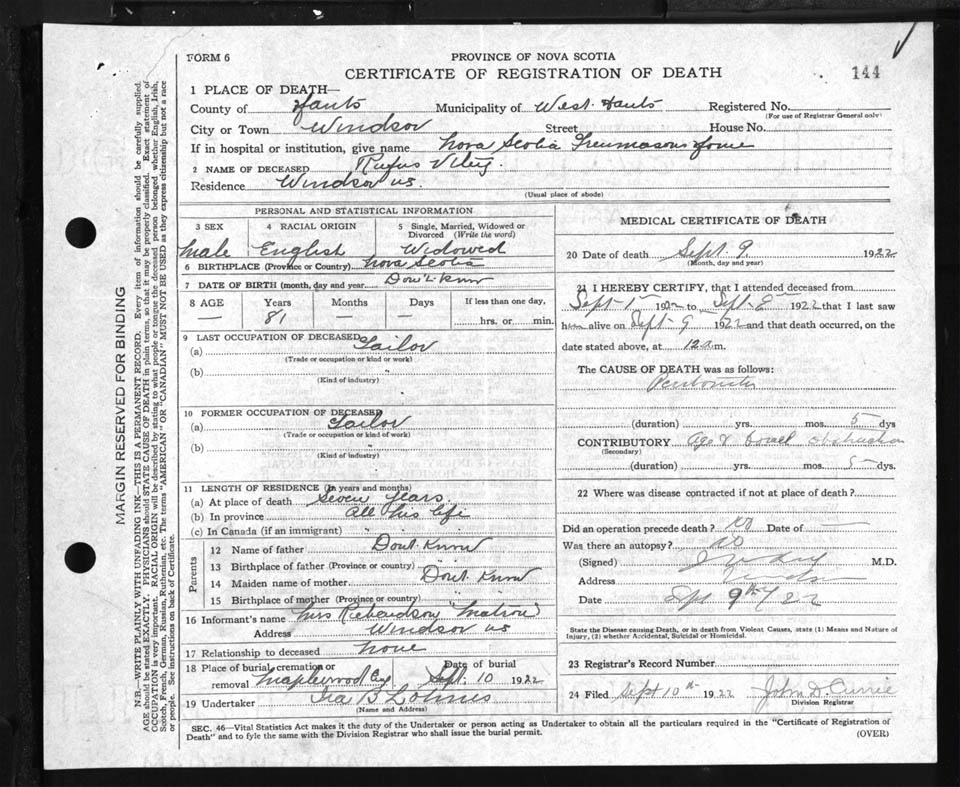 FORM 6
PROVINCE OF NOVA SCOTIA
CERTIFICATE OF REGISTRATION OF DEATH
144
1 PLACE OF DEATH—
County of Hants Municipality of West Hants Registered No.
(For use of Registrar General only)
City or Town Windsor Street House No.
If in hospital or institution, give name Nova Scotia Freemasons Home
2 NAME OF DECEASED Rufus
Residence Windsor NS.
(Usual place of abode)
PERSONAL AND STATISTICAL INFORMATION
3 SEX 4 RACIAL ORIGIN 5 Single, Married, Widowed or Divorced (Write the word)
Male English Widowed
6 BIRTHPLACE (Province or Country) Nova Scotia
7 DATE OF BIRTH (month, day and year) Don't Know
8 AGE Years Months Days If less than one day,
— 81 — — hrs. or min.
9 LAST OCCUPATION OF DECEASED
(a) Sailor
(Trade or occupation or kind or work)
(b)
(Kind of industry)
10 FORMER OCCUPATION OF DECEASED
(a) Sailor
(Trade or occupation or kind of work)
(b)
(Kind of industry)
11 LENGTH OF RESIDENCE (In years and months)
(a) At place of death Seven years.
(b) In province All his life
(c) In Canada (if an immigrant) " "
Parents
12 Name of father Dont Know
13 Birthplace of father (Province or country)
14 Maiden name of mother Dont Know
15 Birthplace of mother (Province or country)
16 Informant's name Mrs Richardson "Matron"
Address Windsor NS
17 Relationship to deceased None
18 Place of burial, cremation or removal Maplewood Cey Date of burial Sept. 10 1922
19 Undertaker Ira B Lohnes
(Name and Address)
MEDICAL CERTIFICATE OF DEATH
20 Date of death Sept 9. 1922
(Month, day and year)
21 I HEREBY CERTIFY, that I attended deceased from
Sept 1st 1922 to Sept 8th 1922 that I last saw
him alive on Sept 9th 1922 and that death occurred, on the
date stated above, at 12 a.m.
The CAUSE OF DEATH was as follows:
Peritonitis
(duration) yrs. mos. 5 dys
CONTRIBUTORY Age & bowel obstruction
(Secondary)
(duration) yrs. mos. 5 dys.
22 Where was disease contracted if not at place of death?
Did an operation precede death? No Date of —
Was there an autopsy? No
(Signed) M.D.
Address Windsor
Date Sept 9th/22
State the Disease causing Death, or in death from Violent Causes, state (1) Means and Nature of
Injury, (2) whether Accidental, Suicidal or Homicidal.
23 Registrar's Record Number
24 Filed Sept 10th 1922 John D. Currie
Division Registrar
SEC. 46—Vital Statistics Act makes it the duty of the Undertaker or person acting as Undertaker to obtain all the particulars required in the "Certificate of Registration of
Death" and to fyle the same with the Division Registrar who shall issue the burial permit.
(OVER)
MARGIN RESERVED FOR BINDING
N.B.—WRITE PLAINLY WITH UNFADING INK—THIS IS A PERMANENT RECORD. Every item of information should be carefully supplied.
AGE should be stated EXACTLY. PHYSICIANS should STATE CAUSE OF DEATH in plain terms, so that it may be properly classified. Exact statement of
OCCUPATION is very important. RACIAL ORIGIN will be described by stating to what people or tongue the deceased person belonged whether English, Irish,
Scotch, French, German, Russian, Ruthenian, etc. The terms "AMERICAN" OR "CANADIAN" MUST NOT BE USED as they express citizenship but not a race
or people. See instructions on back of Certificate.